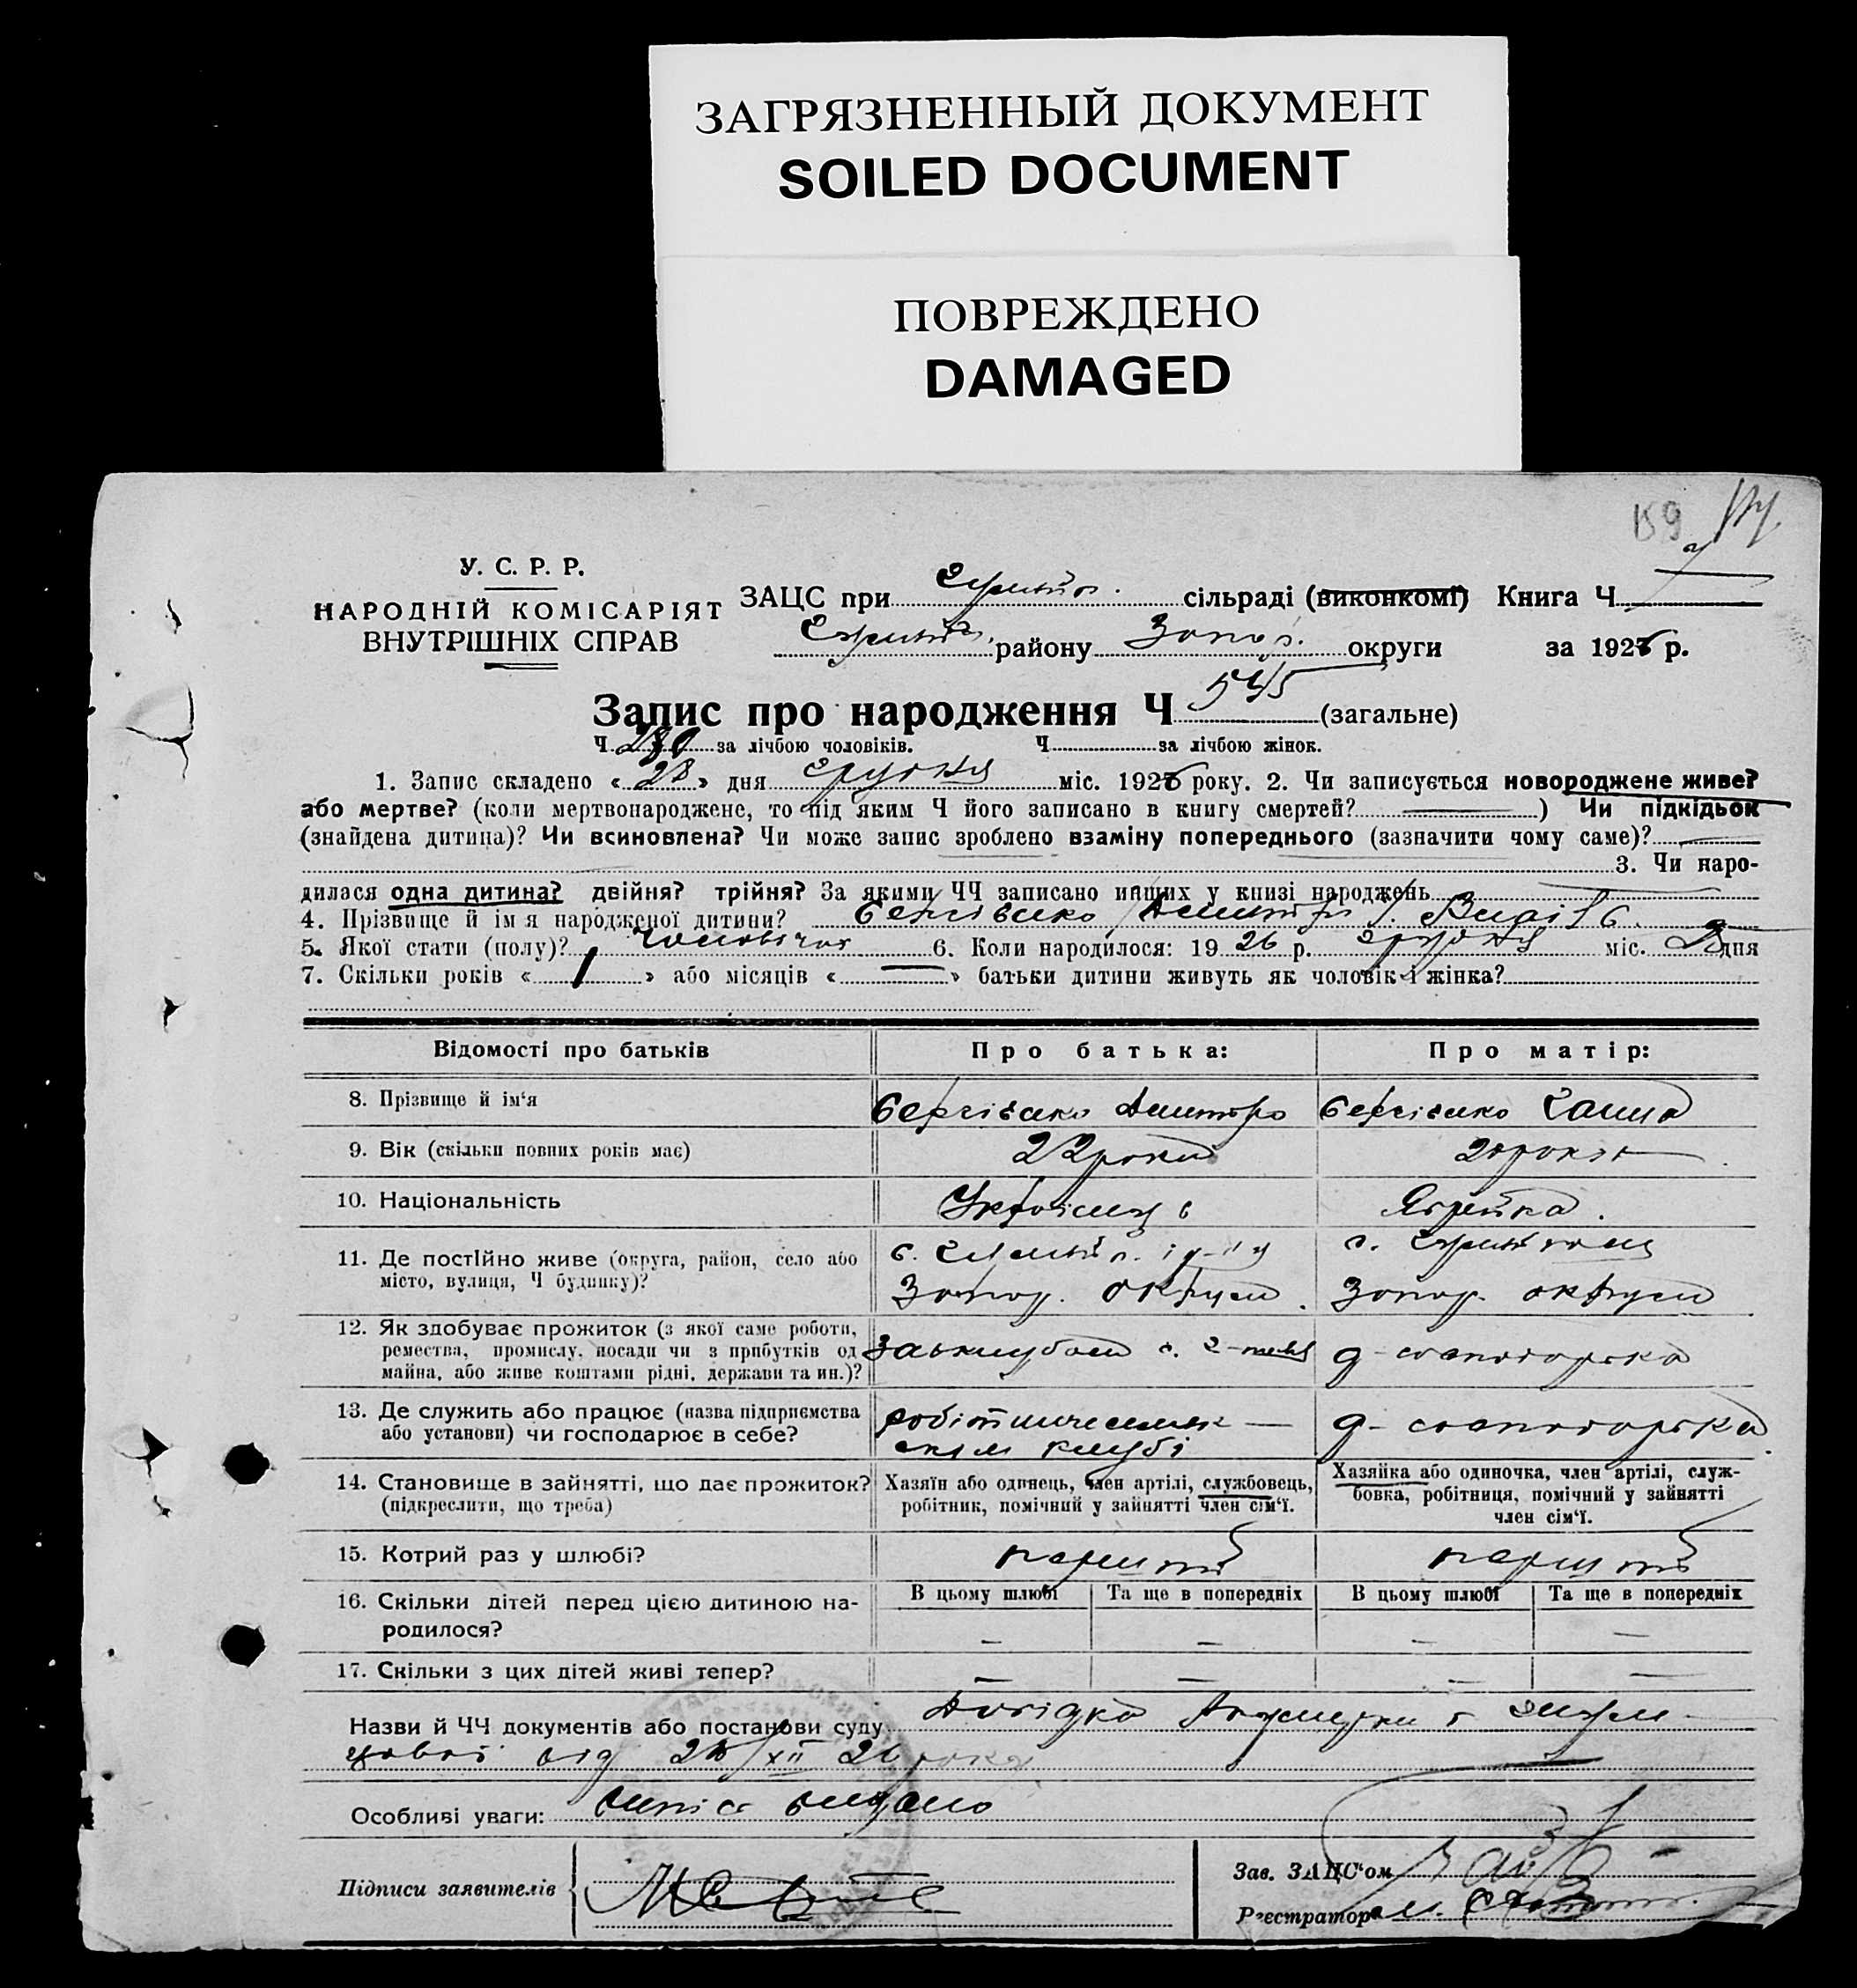 ЗАГРЯЗНЕННЫЙ ДОКУМЕНТ
SOILED DOCUMENT
ПОВРЕЖДЕНО
DAMAGED
159
У. С. Р. Р.
НАРОДНІЙ КОМІСАРІЯТ
ВНУТРІШНІХ СПРАВ
ЗАЦС при сільраді (виконкомі) Книга Ч
району Запор. округи за 1926 р.
Запис про народження Ч 545 (загальне)
Ч. 280 за лічбою чоловіків. Ч. за лічбою жінок.
1. Запис складено «28» дня грудня міс. 1926 року. 2. Чи записується новороджене живе?
або мертве? (коли мертвонароджене, то під яким Ч його записано в книгу смертей? —) Чи підкідьок
(знайдена дитина)? Чи всиновлена? Чи може запис зроблено взаміну попереднього (зазначити чому саме)? —
3. Чи наро-
дилася одна дитина? двійня? трійня? За якими ЧЧ записано инших у книзі народжень
4. Прізвище й ім я народженої дитини?
5. Якої стати (полу)? чоловічої 6. Коли народилося: 1926 р. грудня міс. дня
7. Скільки років «1» або місяців «—» батьки дитини живуть як чоловік і жінка?
Відомості про батьків Про батька: Про матір:
8. Прізвище й ім‘я Дмитро
9. Вік (скільки повних років має) 22 роки 20 років
10. Національність Українець Яврейка.
11. Де постійно живе (округа, район, село або
місто, вулиця, Ч будинку)?
Запор. округи. Запор. округи
12. Як здобуває прожиток (з якої саме роботи,
ремества, промислу, посади чи з прибутків од
майна, або живе коштами рідні, держави та ин.)?
завклубом д-господорька
13. Де служить або працює (назва підприємства
або установи) чи господарює в себе?
клубі д-господорька
14. Становище в зайнятті, що дає прожиток?
(підкреслити, що треба)
Хазяїн або одинець, член артілі, службовець,
робітник, помічний у зайнятті член сім‘ї.
Хазяйка або одиночка, член артілі, служ-
бовка, робітниця, помічний у зайнятті
член сім‘ї.
15. Котрий раз у шлюбі? перший перший
В цьому шлюбі Та ще в попередніх В цьому шлюбі Та ще в попередніх
16. Скільки дітей перед цією дитиною на-
родилося?
— — — —
17. Скільки з цих дітей живі тепер? — — — —
Назви й ЧЧ документів або постанови суду Довідка Акушерки
від 28/XII 26 року
Особливі уваги: Випис видано
Підписи заявителів
Зав. ЗАЦС‘ом
Реєстратор